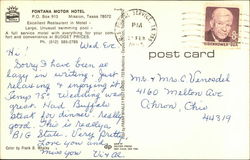 FONTANA MOTOR HOTEL
P.O. Box 913 Mission, Texas 78572
Excellent Restaurant in Motel -
Large, Unusual swimming pool -
A full service motel with everything for your com-
fort and convenience at BUDGET PRICES.
Ph. (512) 585-2785
Wed. Eve
Hi!
Sorry I have been so
lazy in writing. Just
relaxing & enjoying it.
Temp 75° wedding was
great. Had Buffalo
steak for dinner. really
good. This is really a
"Big State. Very Pretty
Love you and
miss you
Color by Frank B.
PM
EISENHOWER · USA
post card
Mr & Mrs C Venodel
4160 Melton Ave
Akron, Ohio
44319